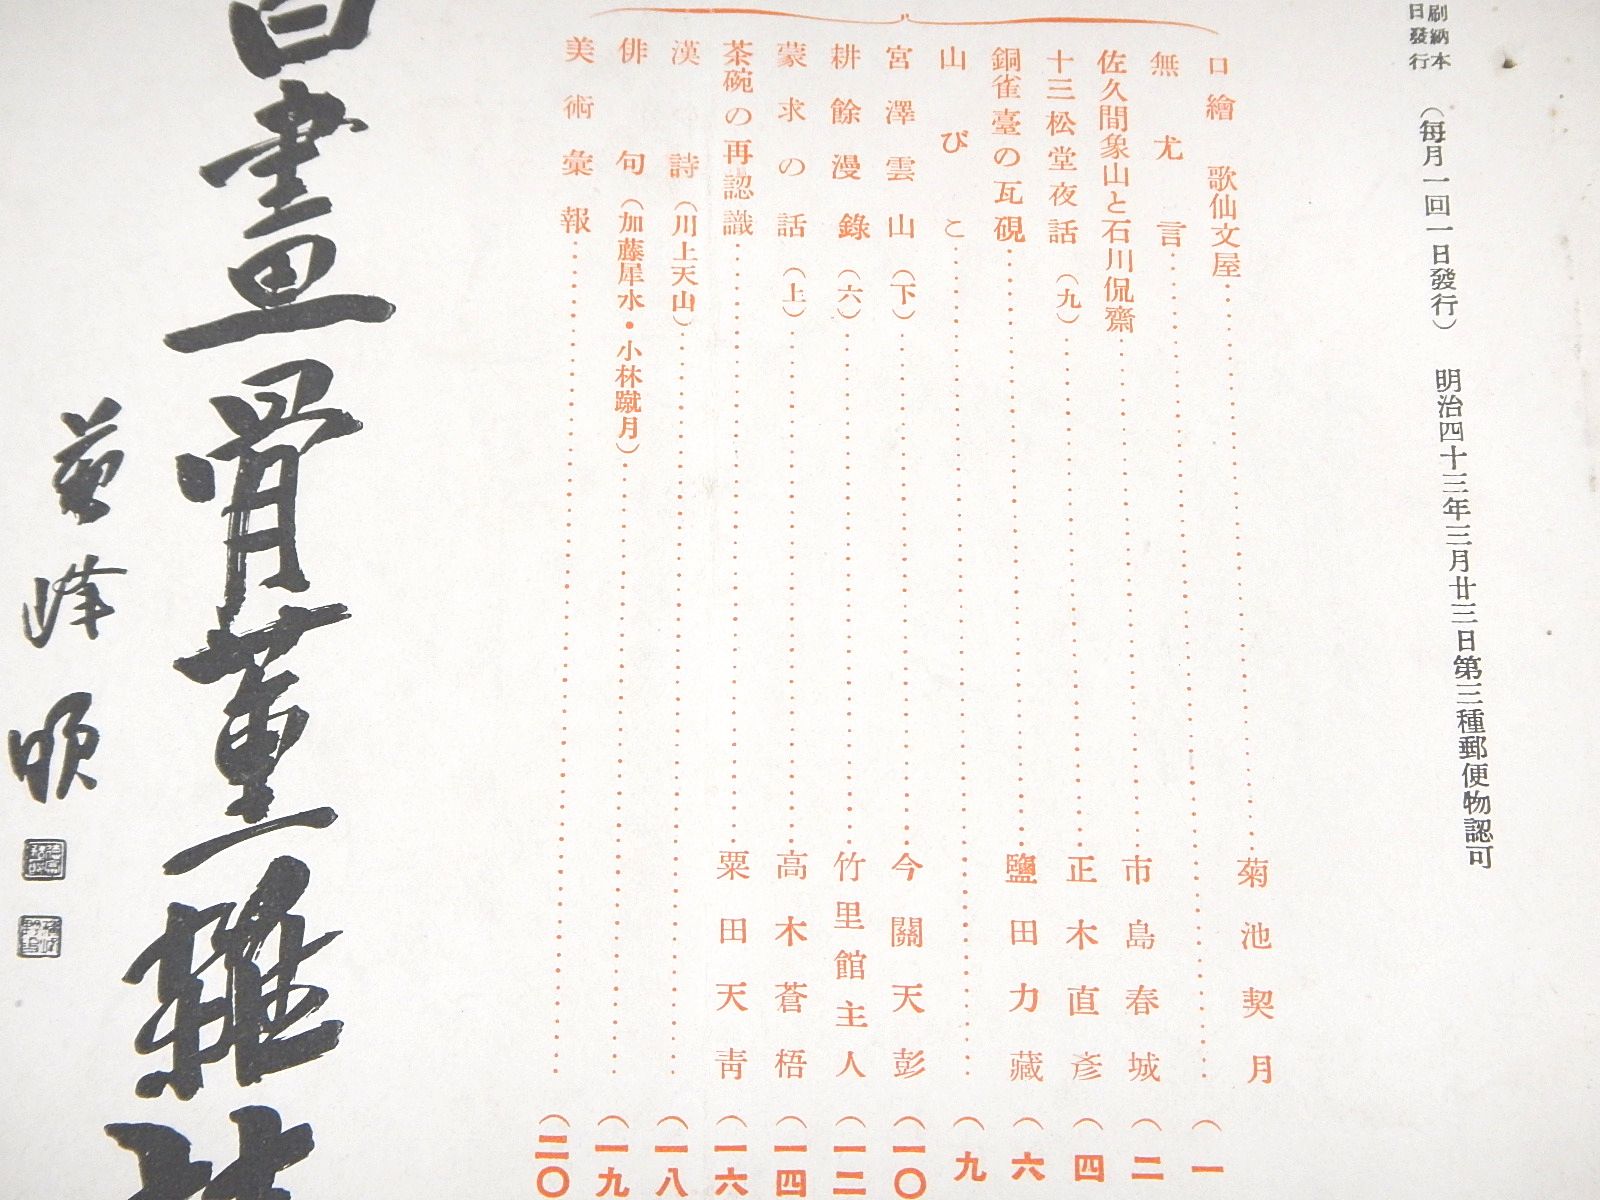 刷納本
日發行
（每月一回一日發行）　明治四十三年三月廿三日第三種郵便物認可
口繪　歌仙文屋…………菊池契月
無尤言…………（一
佐久間象山と石川侃齋…………市島春城（二
十三松堂夜話（九）…………正木直彥（四
銅雀臺の瓦硯…………鹽田力藏（六
山びこ…………（九
宮澤雲山（下）…………今關天彭（一〇
耕餘漫錄（六）…………竹里館主人（一二
蒙求の話（上）…………高木蒼梧（一四
茶碗の再認識…………粟田天靑（一六
漢詩（川上天山）…………（一八
俳句（加藤犀水・小林蹴月）…………（一九
美術彙報…………（二〇
書畫骨董雜誌
蘇峰